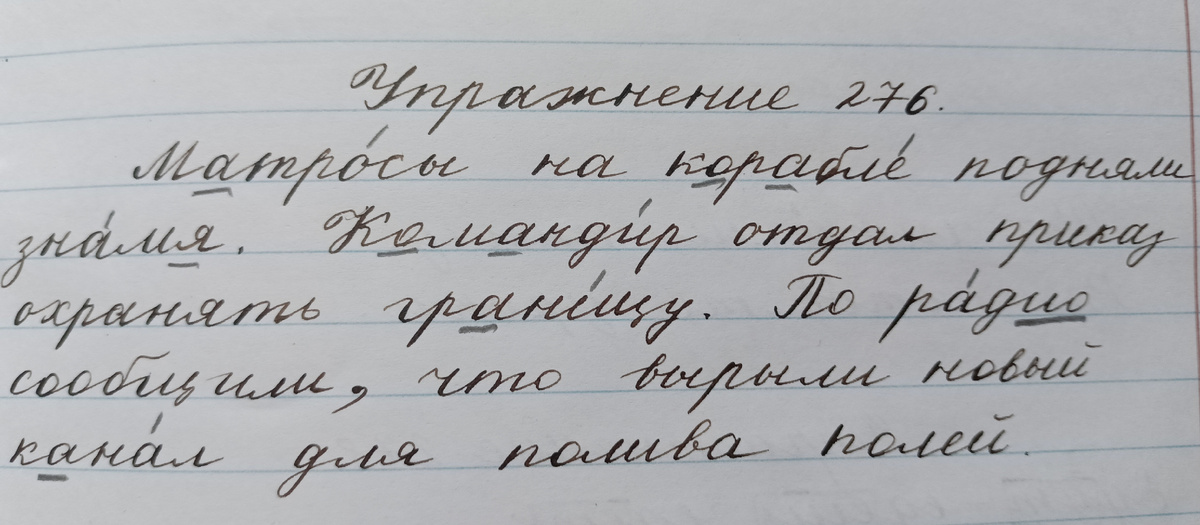 Упражнение 276.
Матро́сы на корабле́ подняли
зна́мя. Команди́р отдал приказ
охранять грани́цу. По ра́дио
сообщили, что вырыли новый
кана́л для полива полей.